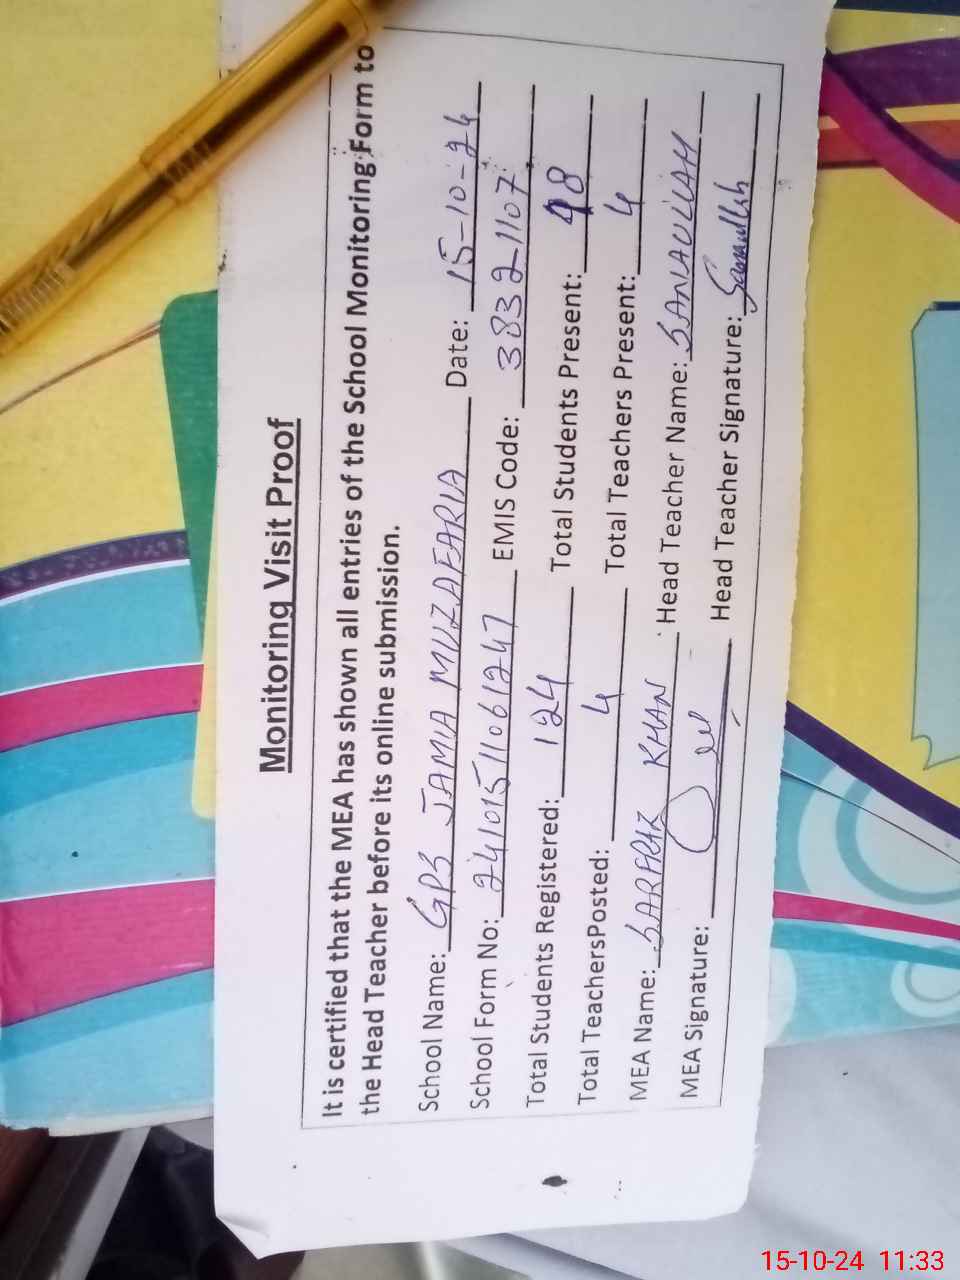 Monitoring Visit Proof
It is certified that the MEA has shown all entries of the School Monitoring Form to
the Head Teacher before its online submission.
School Name: GPS JAMIA MUZAFARIA Date: 15-10-24
School Form No: 24101511061247 EMIS Code: 38321107
Total Students Registered: 124 Total Students Present: 98
Total TeachersPosted: 4 Total Teachers Present: 4
MEA Name: SARFRAZ KHAN Head Teacher Name: SANAULLAH
MEA Signature: Head Teacher Signature:
15-10-24 11:33